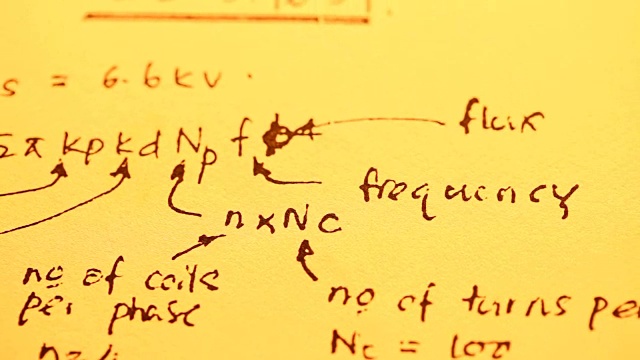 s = 6.6kv.
2π kp kd Np f φ flux
frequency
n x Nc
no of coils
per phase
no of turns per
Nc = 100